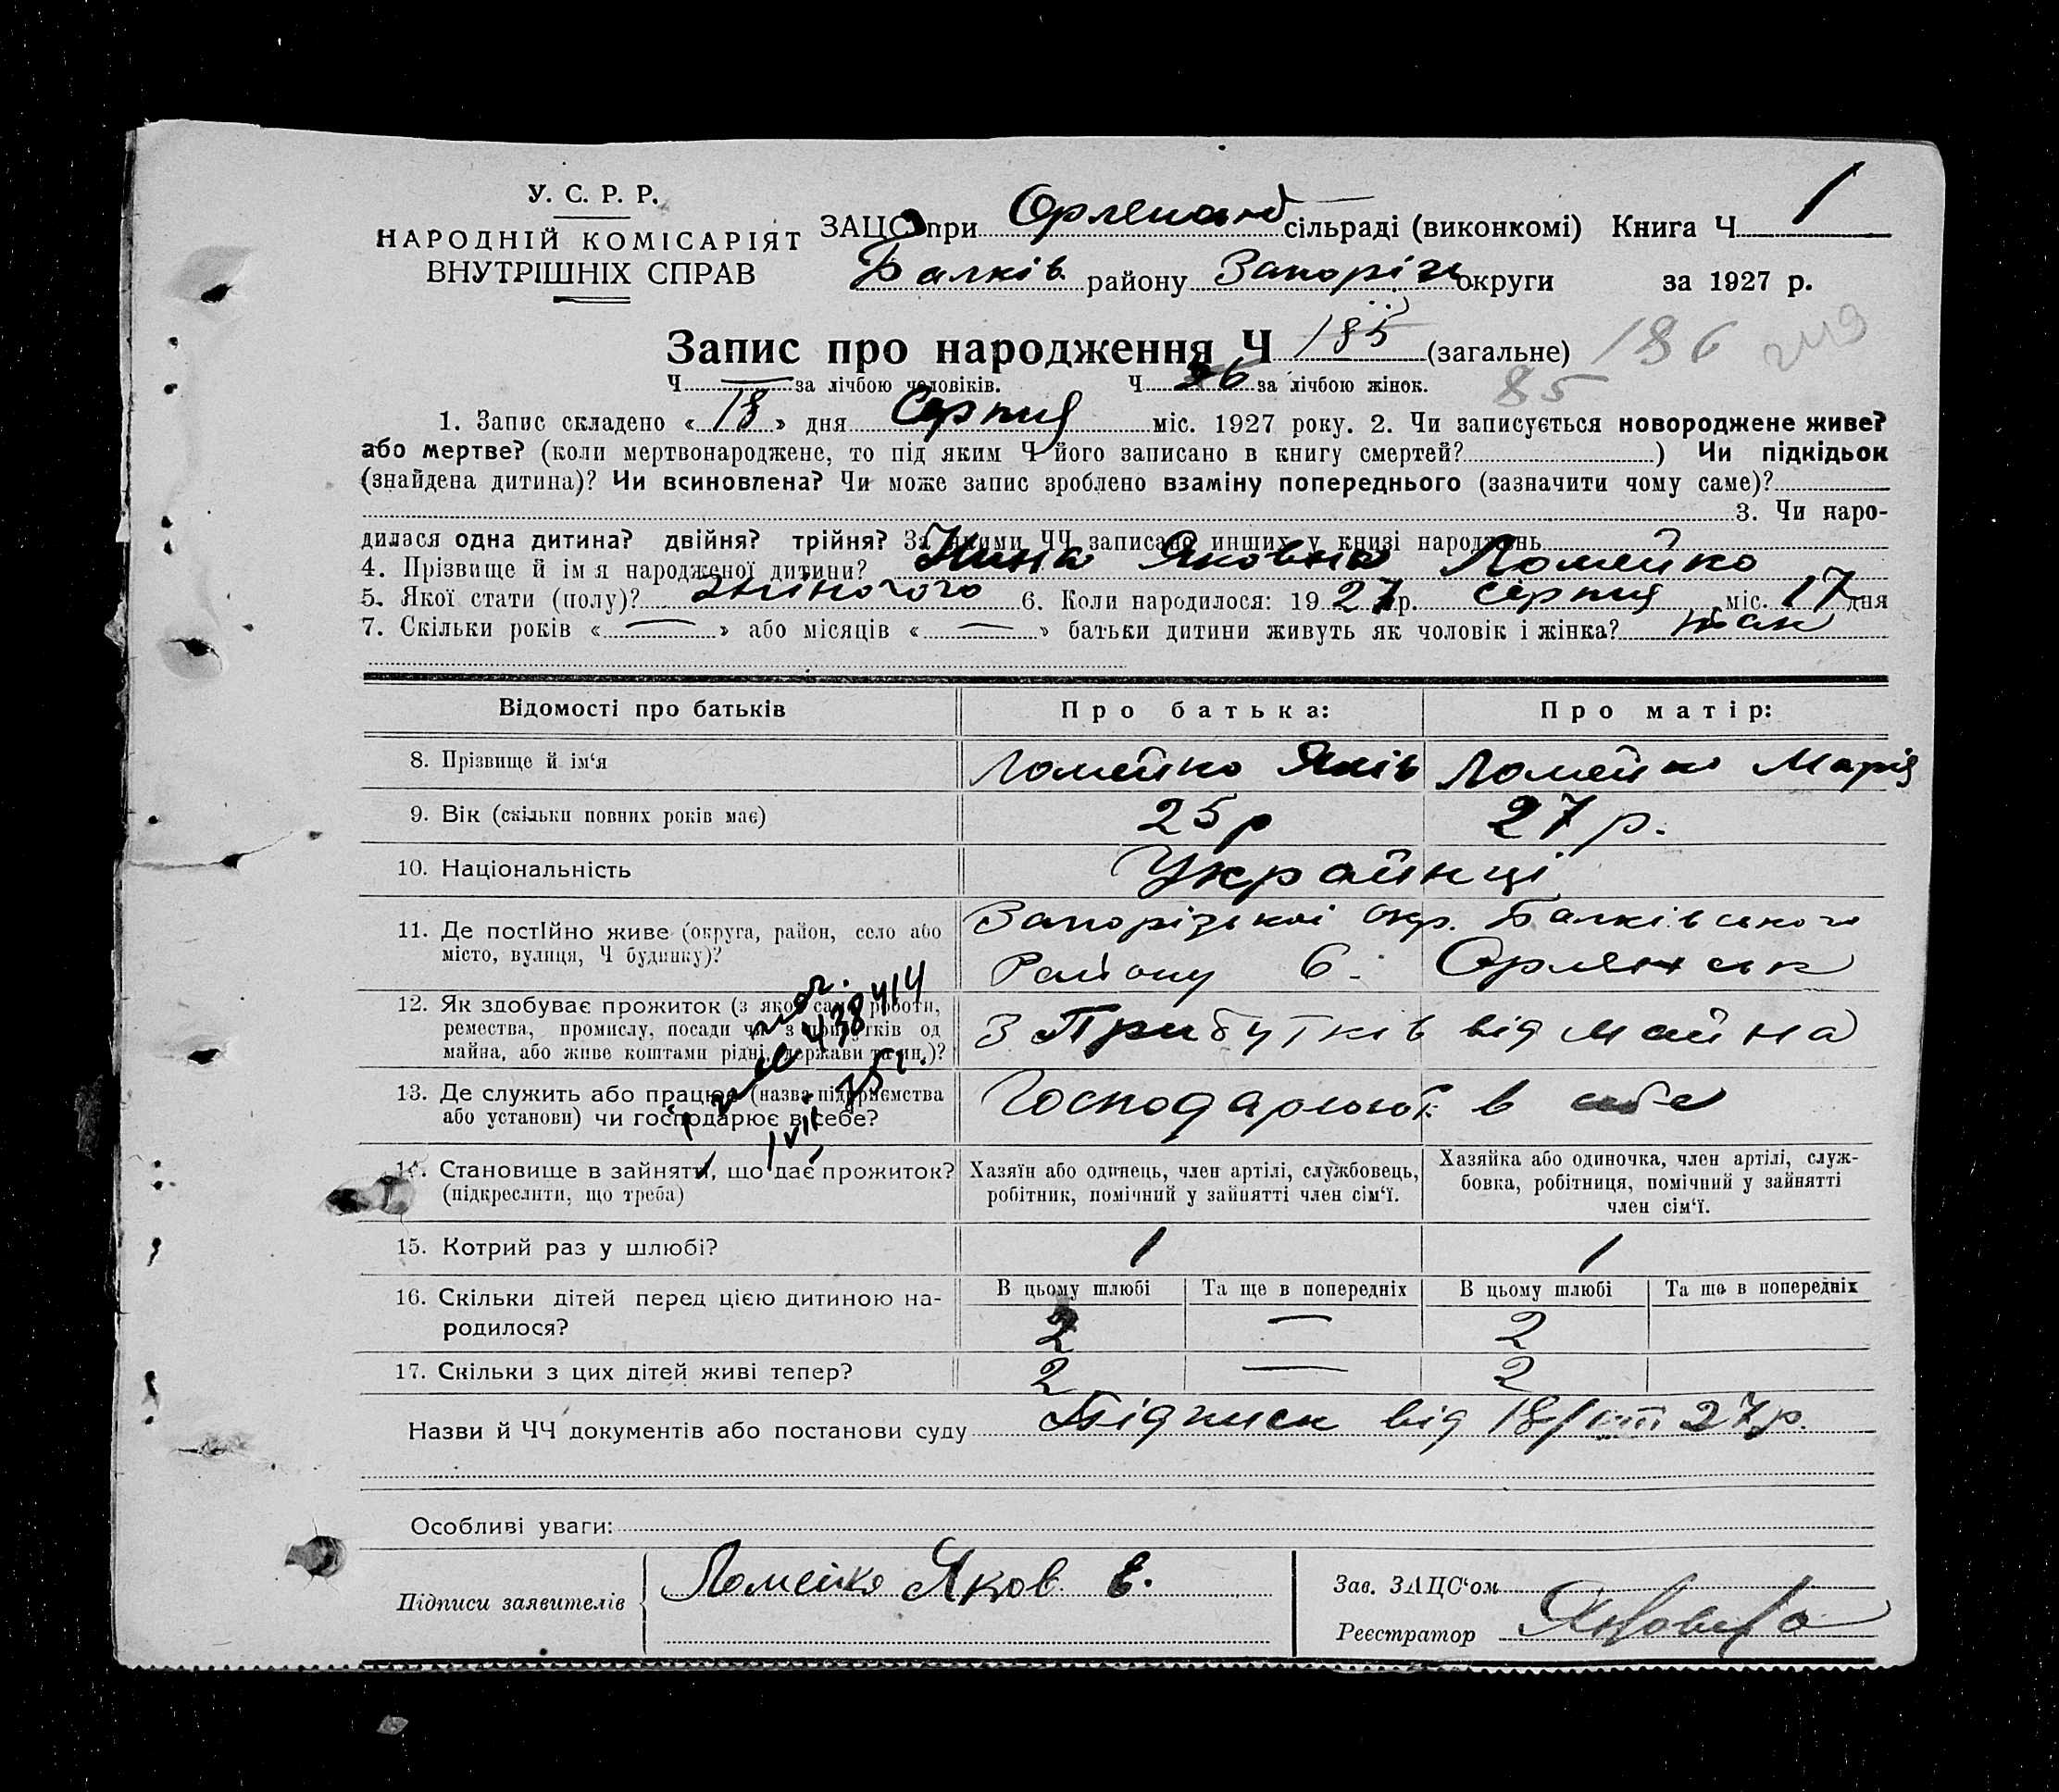 У. С. Р. Р.
НАРОДНІЙ КОМІСАРІЯТ
ВНУТРІШНІХ СПРАВ
ЗАЦС при Орлянськ сільраді (виконкомі) Книга Ч 1
Балків району Запоріз округи за 1927 р.
Запис про народження Ч 185 (загальне) 186
Ч — за лічбою чоловіків. Ч 86 за лічбою жінок. 85
1. Запис складено « 18 » дня Серпня міс. 1927 року. 2. Чи записується новороджене живе?
або мертве? (коли мертвонароджене, то під яким Ч його записано в книгу смертей? ) Чи підкідьок
(знайдена дитина)? Чи всиновлена? Чи може запис зроблено взаміну попереднього (зазначити чому саме)?
3. Чи наро-
дилася одна дитина? двійня? трійня? За якими ЧЧ записано инших у книзі народжень
4. Прізвище й ім я народженої дитини? Нина Яковна Ломейко
5. Якої стати (полу)? жіночого 6. Коли народилося: 1927 р. серпня міс. 17 дня
7. Скільки років « — » або місяців « — » батьки дитини живуть як чоловік і жінка? так
Відомості про батьків Про батька: Про матір:
8. Прізвище й ім‘я Ломейко Яків Ломейко Марія
9. Вік (скільки повних років має) 25 р 27 р.
10. Національність Українці
11. Де постІйно живе (округа, район, село або Запорізької окр. Балківського
місто, вулиця, Ч будинку)? Району с. Орлянськ
12. Як здобуває прожиток (з якої саме роботи,
ремества, промислу, посади чи з прибутків од З Прибутків від майна
майна, або живе коштами рідні, держави та ин.)?
13. Де служить або працює (назва підприємства Господарюют в себе
або установи) чи господарює в себе?
14. Становище в зайнятті, що дає прожиток? Хазяїн або одинець, член артілі, службовець, Хазяйка або одиночка, член артілі, служ-
(підкреслити, що треба) робітник, помічний у зайнятті член сім‘ї. бовка, робітниця, помічний у зайнятті
член сім‘ї.
15. Котрий раз у шлюбі? 1 1
16. Скільки дітей перед цією дитиною на- В цьому шлюбі Та ще в попередніх В цьому шлюбі Та ще в попередніх
родилося? 2 — 2
17. Скільки з цих дітей живі тепер? 2 — 2
Назви й ЧЧ документів або постанови суду Підписк від 18/VIII 27 р.
Особливі уваги:
Підписи заявителів Ломейко Яков Е. Зав. ЗАЦС‘ом
Реєстратор